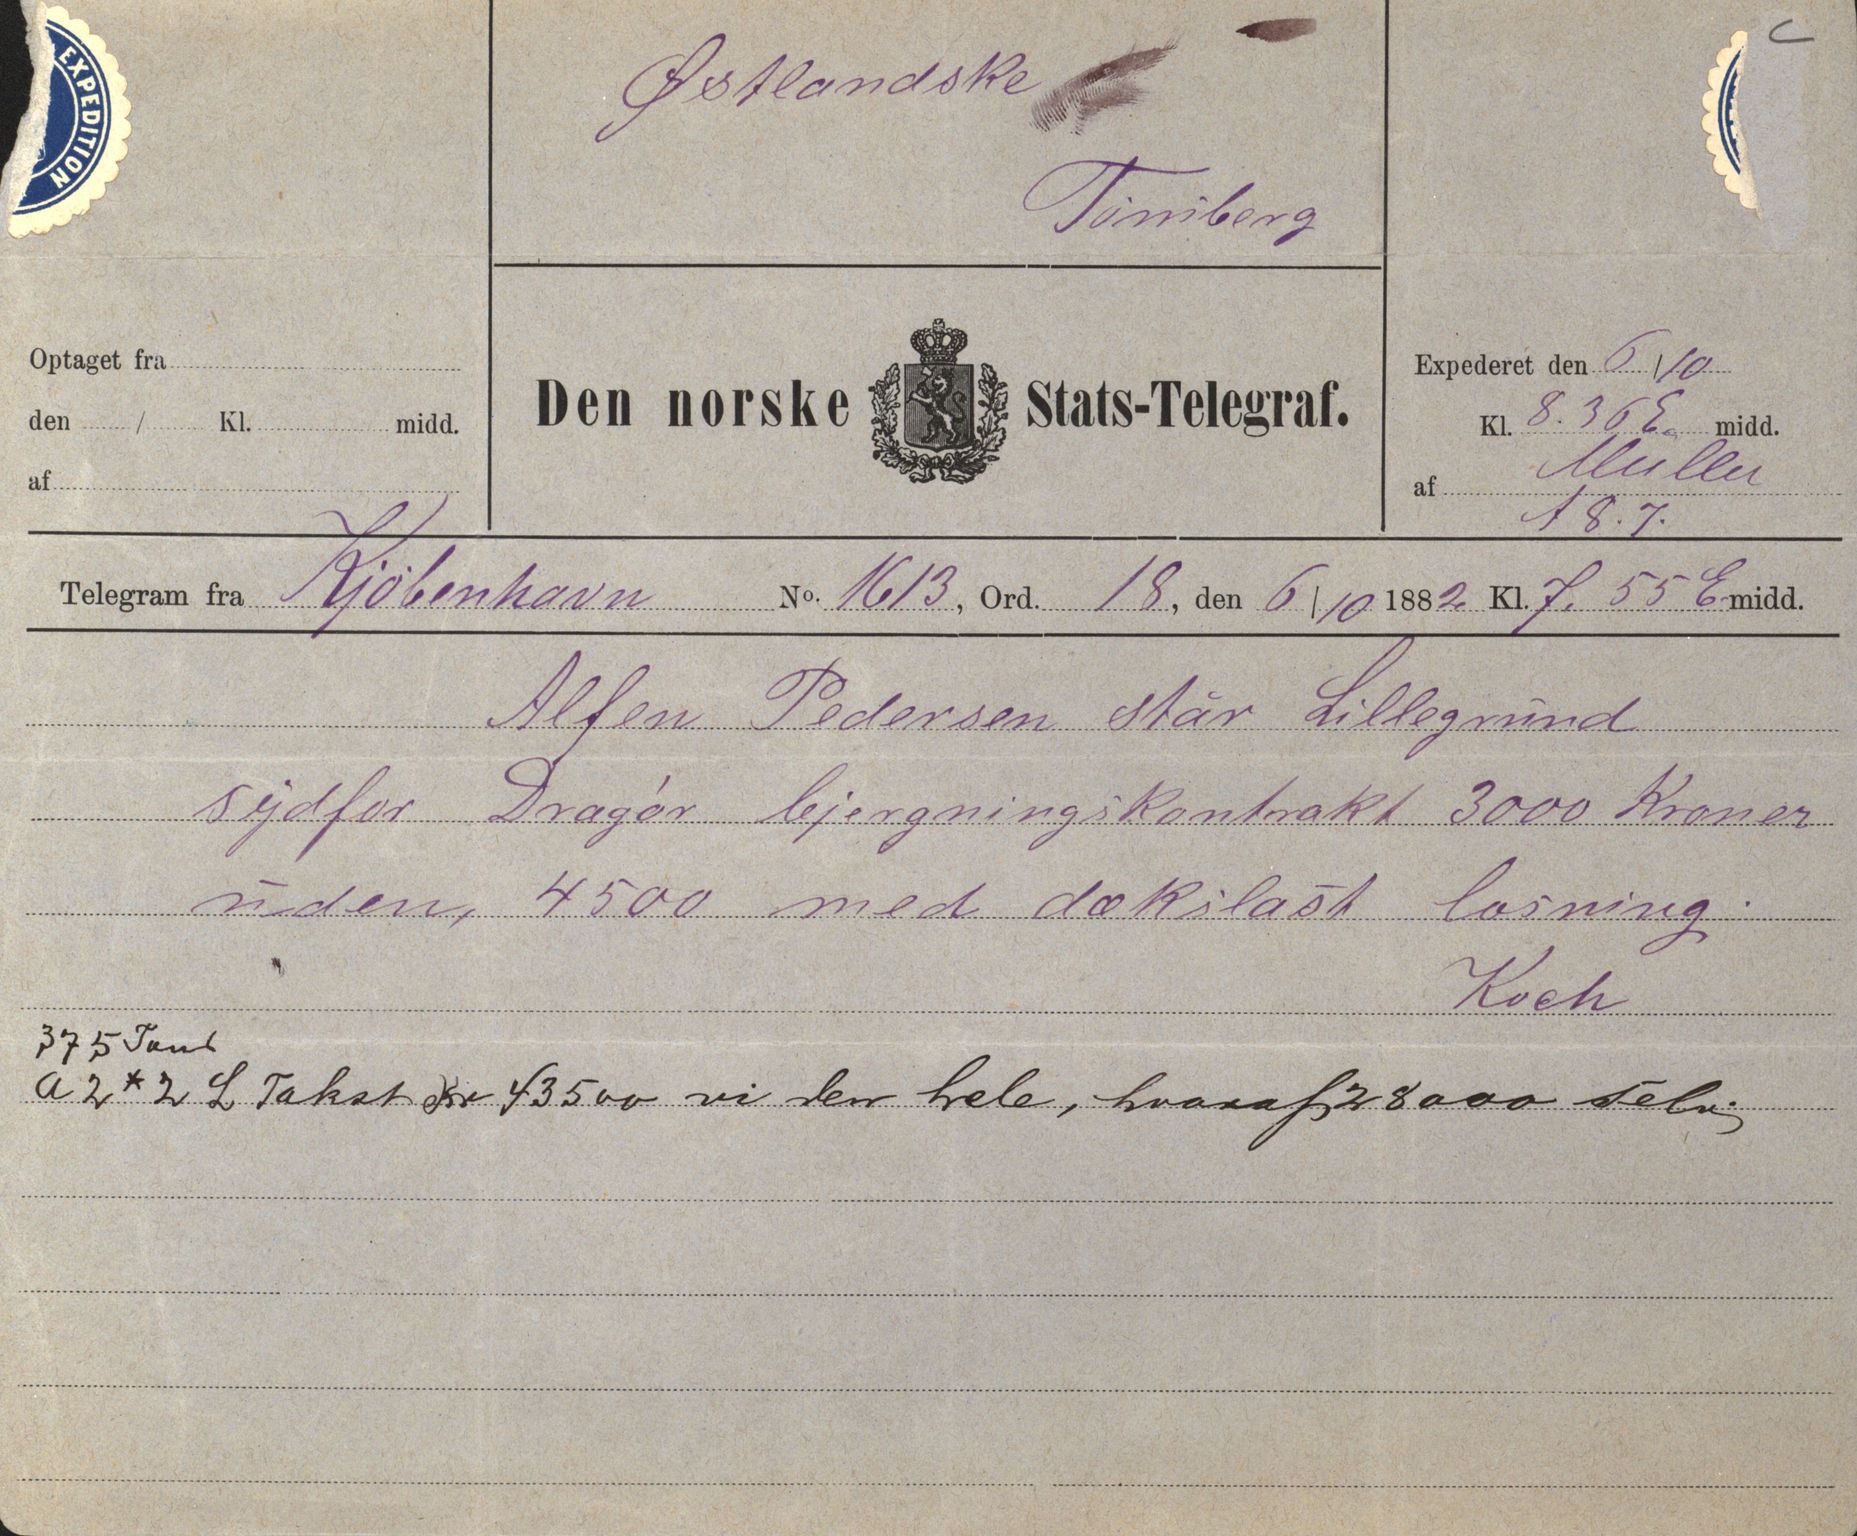 EXPEDITION
C
Østlandske
Tönsberg
Optaget fra
den / Kl. midd.
af
Den norske Stats-Telegraf.
Expederet den 6/10
Kl. 8.36 E. midd.
af Müller
A 8.7.
Telegram fra Kjöbenhavn No. 1613, Ord. 18, den 6/10 1882 Kl. 7.55 E midd.
Alfen Pedersen står Lillegrund
sydfor Dragör bjergningskontrakt 3000 Kroner
uden, 4500 med dækslast losning.
Koch
375 Tons
A 2*2 L Takst Kr 43500 vi den hele, hvoraf 28000 selv